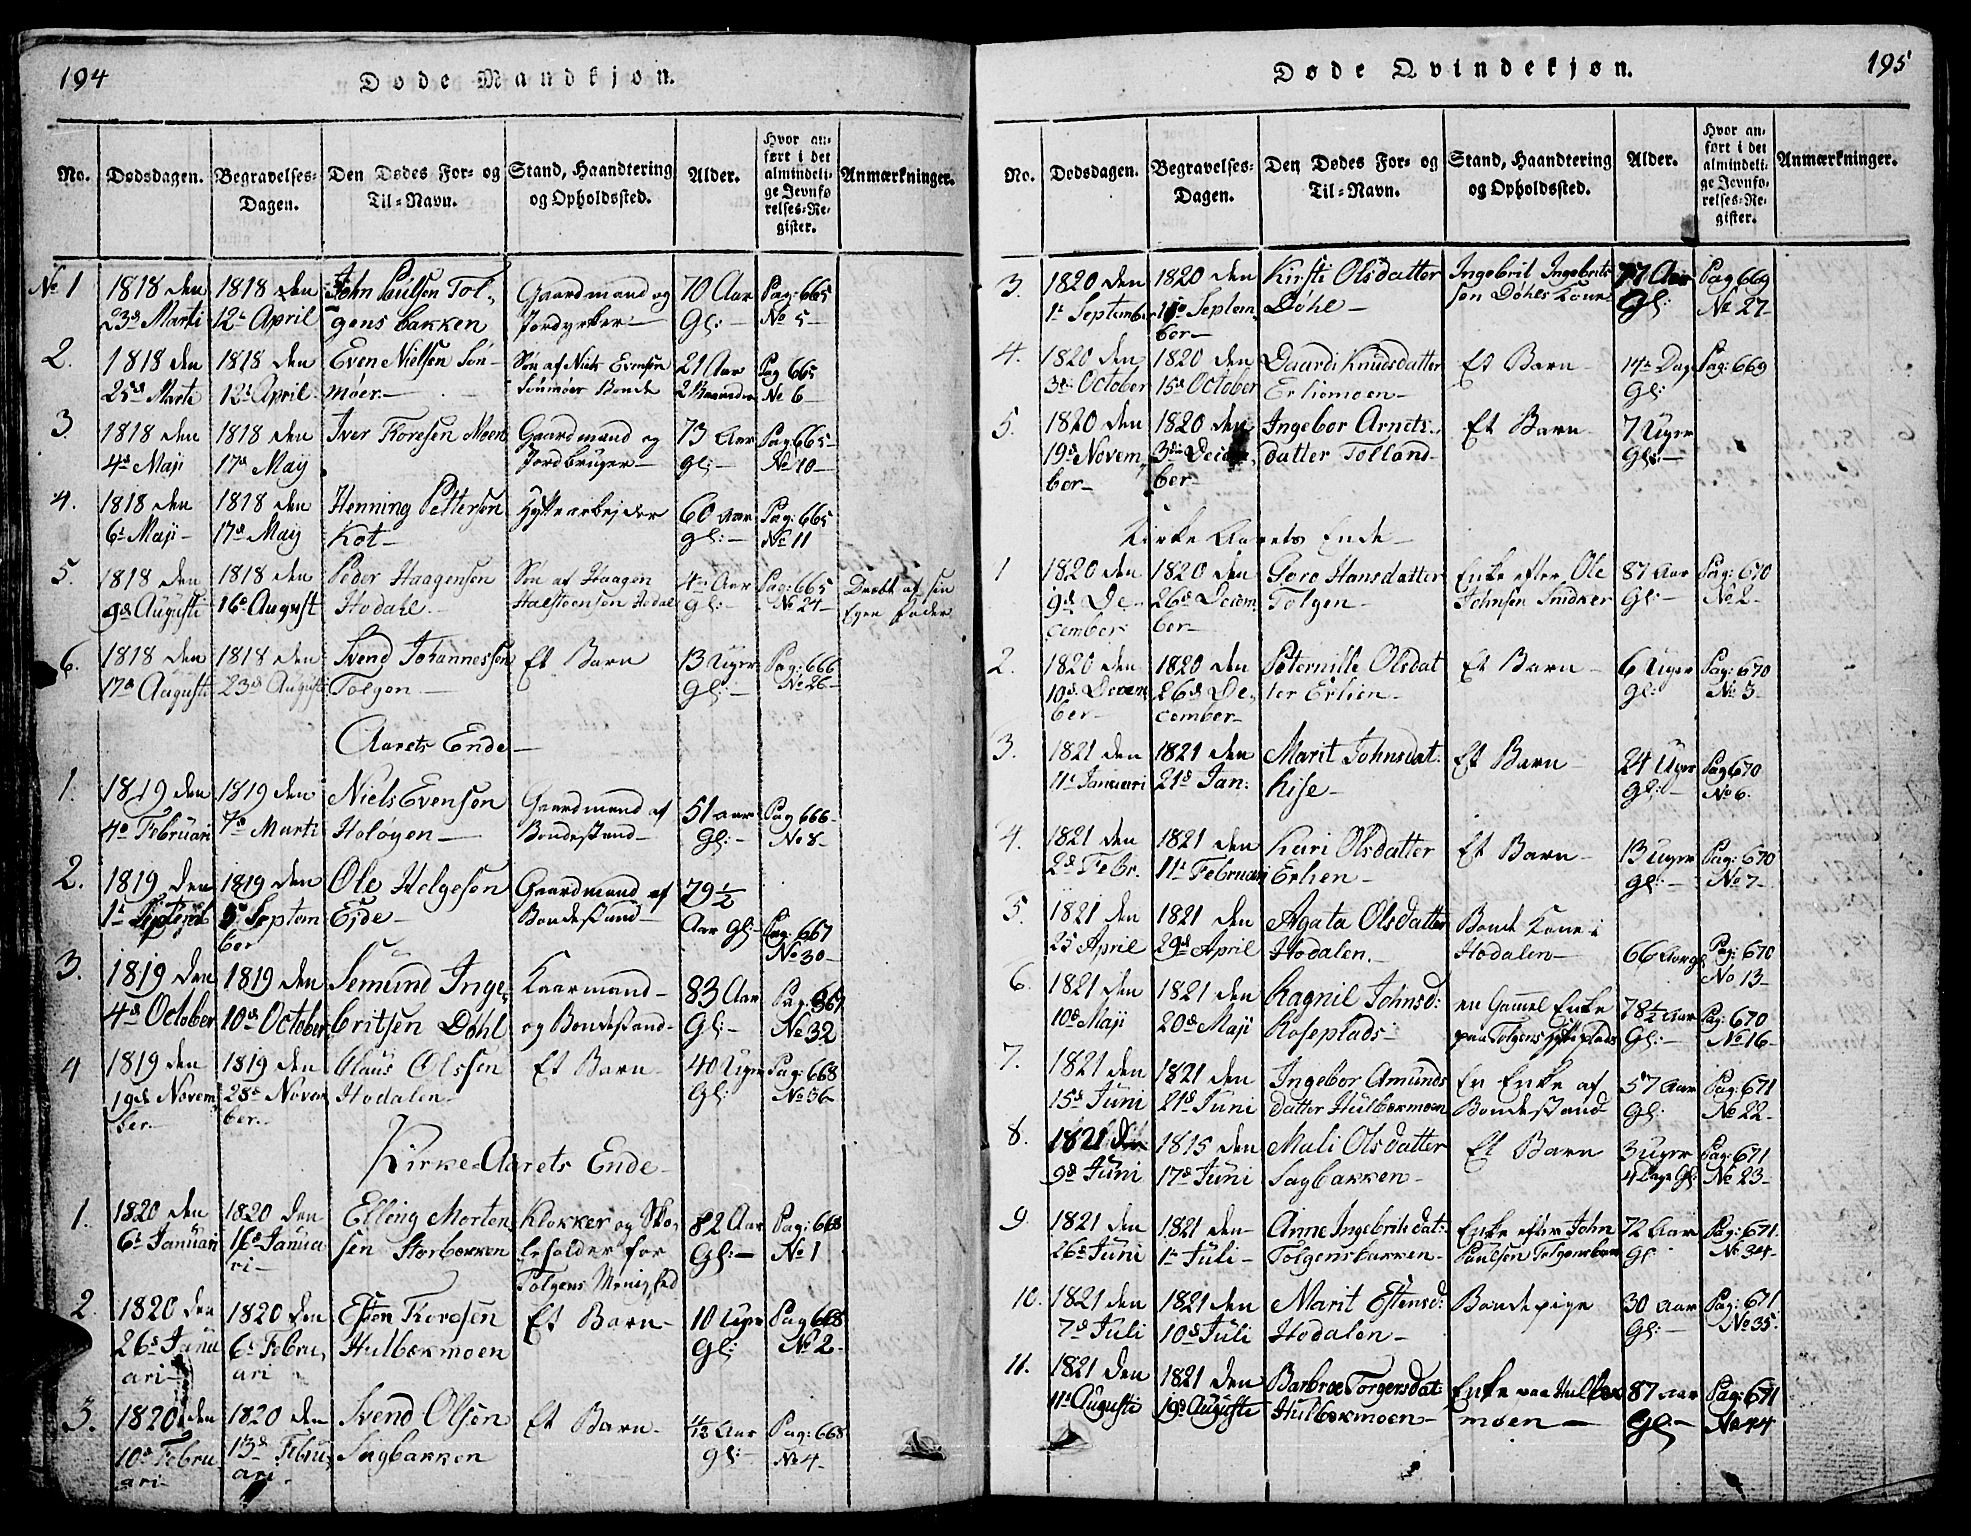 194
Døde Mandkjøn.
No.
Dødsdagen.
Begravelses-
Dagen.
Den Dødes For- og
Til-Navn.
Stand, Haandtering
og Opholdssted.
Alder.
Hvor an-
ført i det
almindeli-
ge Jevnfø
relses-Re-
gister.
Anmærkninger.
No 1
1818 den
23d Marti
1818 den
12t April
John Poulsen Tol-
gens bakken
Gaardmand og
Jordyrker
70 Aar
Gl:
Pag: 665
No 5
2.
1818 den
25d Marti
1818 den
12t April
Even Nielsen Søn-
møer
Søn af Niels Evensen
Sønmøer Bonde
21 Aar
2 Maaneder
Pag 665
No 6
3.
1818 den
4d Maji
1818 den
17d May
Iver Toresen Moen
Gaardmand og
Jordbruger
73 Aar
gl:
Pag: 665
No 10
4.
1818 den
6t Maji
1818 den
17d May
Henning Pettersen
Kot
Hyttearbejder
60 Aar
gl:
Pag: 665
No 11
5.
1818 den
9d Augusti
1818 den
16d August
Peder Haagensen
Hodahl
Søn af Haagen
Halsteensen Hodal
4 Aar
gl:
Pag: 665
No 24
Dræbt af sin
Egen Fader
6.
1818 den
17d Augusti
1818 den
23d Augusti
Svend Johannessen
Tolgen
Et Barn
13 Uger
Gl:
Pag: 666
No 26
Aarets Ende
1.
1819 den
4d Februari
1819 den
7d Marti
Niels Evensen
Holøyen
Gaardmand af
Bondestand
51 aar
Gl:
Pag 666
No 8
2.
1819 den
1t
1819 den
5d Septem
ber
Ole Helgesen
Eide
Gaardmand af
Bondestand
79 1/2
Aar Gl:
Pag: 667
No 30
3.
1819 den
4d October
1819 den
10d October
Semund Inge-
britsen Døhl
Kaarmand
og Bondestand
83 Aar
Gl:
Pag: 667
No 32
4
1819 den
19d Novem
ber
1819 den
28d Novem
ber
Olaus Olssen
Hodalen
Et Barn
40 Uger
Gl:
Pag: 668
No 36
Kirke-Aarets Ende
1.
1820 den
6t Januari
1820 den
16d Janua
ri
Elling Morten
sen Storbækken
Klokker og Sko-
leholder for
Tolgens Menighed
82 Aar
Gl:
Pag: 668
No 1
2.
1820 den
26d Janu
ari
1820 den
6t Febru
ari
Esten Toresen
Hulbækmoen
Et Barn
10 Uger
Gl:
Pag 668
No 2
3.
1820 den
10d Febru
ari
1820 den
13d Febru
ari
Svend Olsen
Sagbakken
Et Barn
Aar
gl:
Pag: 668
No 4
195
Døde Qvindekjøn.
No.
Dødsdagen.
Begravelses-
Dagen.
Den Dødes For- og
Til-Navn.
Stand, Haandtering
og Opholdssted.
Alder.
Hvor an-
ført i det
almindeli-
ge Jevnfø-
relses-Re-
gister.
Anmærkninger.
3.
1820 den
1t September
1820 den
Septem
ber
Kirsti Olsdatter
Døhl
Ingebrit Ingebrit-
sen Døhls Kone
77 Aar
Gl:
Pag 669
No 27
4.
1820 den
3d October
1820 den
15d October
Daardi Knudsdatter
Erliemoen
Et Barn
14 Dag
Gl:
Pag: 669
5.
1820 den
19d Novem
ber
1820 den
3die Decem
ber
Ingebor Arnets-
datter Tolland
Et Barn
7 Uger
Gl:
Kirke Aarets Ende
1
1820 den
9d De-
cember
1820 den
26d Decem
ber
Goro Hansdatter
Tolgen
Enke efter Ole
Johnsen Snidker
87 Aar
Gl:
Pag: 670
No 2
2.
1820 den
10d Decem
ber
1820 den
26d De-
cember
Peternille Olsdat
ter Erlien
Et Barn
6 Uger
Gl:
Pag: 670
No 3
3.
1821 den
11t Januari
1821 den
21d Jan:
Marit Johnsdat:
Kise
Et Barn
24 Uger
Gl:
Pag 670
No 6
4.
1821 den
2d Febr.
1821 den
11t Februari
Kari Olsdatter
Erlien
Et Barn
13 Uger
Gl:
Pag: 670
No 7
5.
1821 den
25 April
1821 den
29d April
Agata Olsdatter
Hodalen
Bonde Kone i
Hodalen
66 Aar gl
Pag: 670
No 13
6.
1821 den
10d Maji
1821 den
20d Maji
Ragnil Johnsd:
Roseplads
en Gammel Enke
paa Tolgens Hytteplads
78 1/2 Aar
Gl:
Pag: 670
No 16
7.
1821 den
15d Juni
1821 den
21d Juni
Ingebor Amunds
datter Hulbækmoen
En Enke af
Bondestand
57 Aar
Gl:
Pag: 671
No 22
8.
1821 den
9d Juni
1815 den
17d Juni
Mali Olsdatter
Sagbakken
Et Barn
3 Uger
4 Dage Gl:
Pag: 671
No 23
9.
1821 den
26d Juni
1821 den
1t Juli
Anne Ingebritsdat:
Tolgensbakken
Enke efter John
Paulsen Tolgensbak
72 Aar
Gl
Pag: 671
No 34
10.
1821 den
7d Juli
1821 den
10d Juli
Marit Estensd:
Hodalen
Bondepige
30 Aar
Gl:
Pag: 671
No 35
11.
1821 den
11t Augusti
1821 den
19d Augusti
Barbroe Torgersdat:
Hulbækmoen
Enke paa Hulbæk
moen
87 aar
Gl:
Pag: 671
No 44